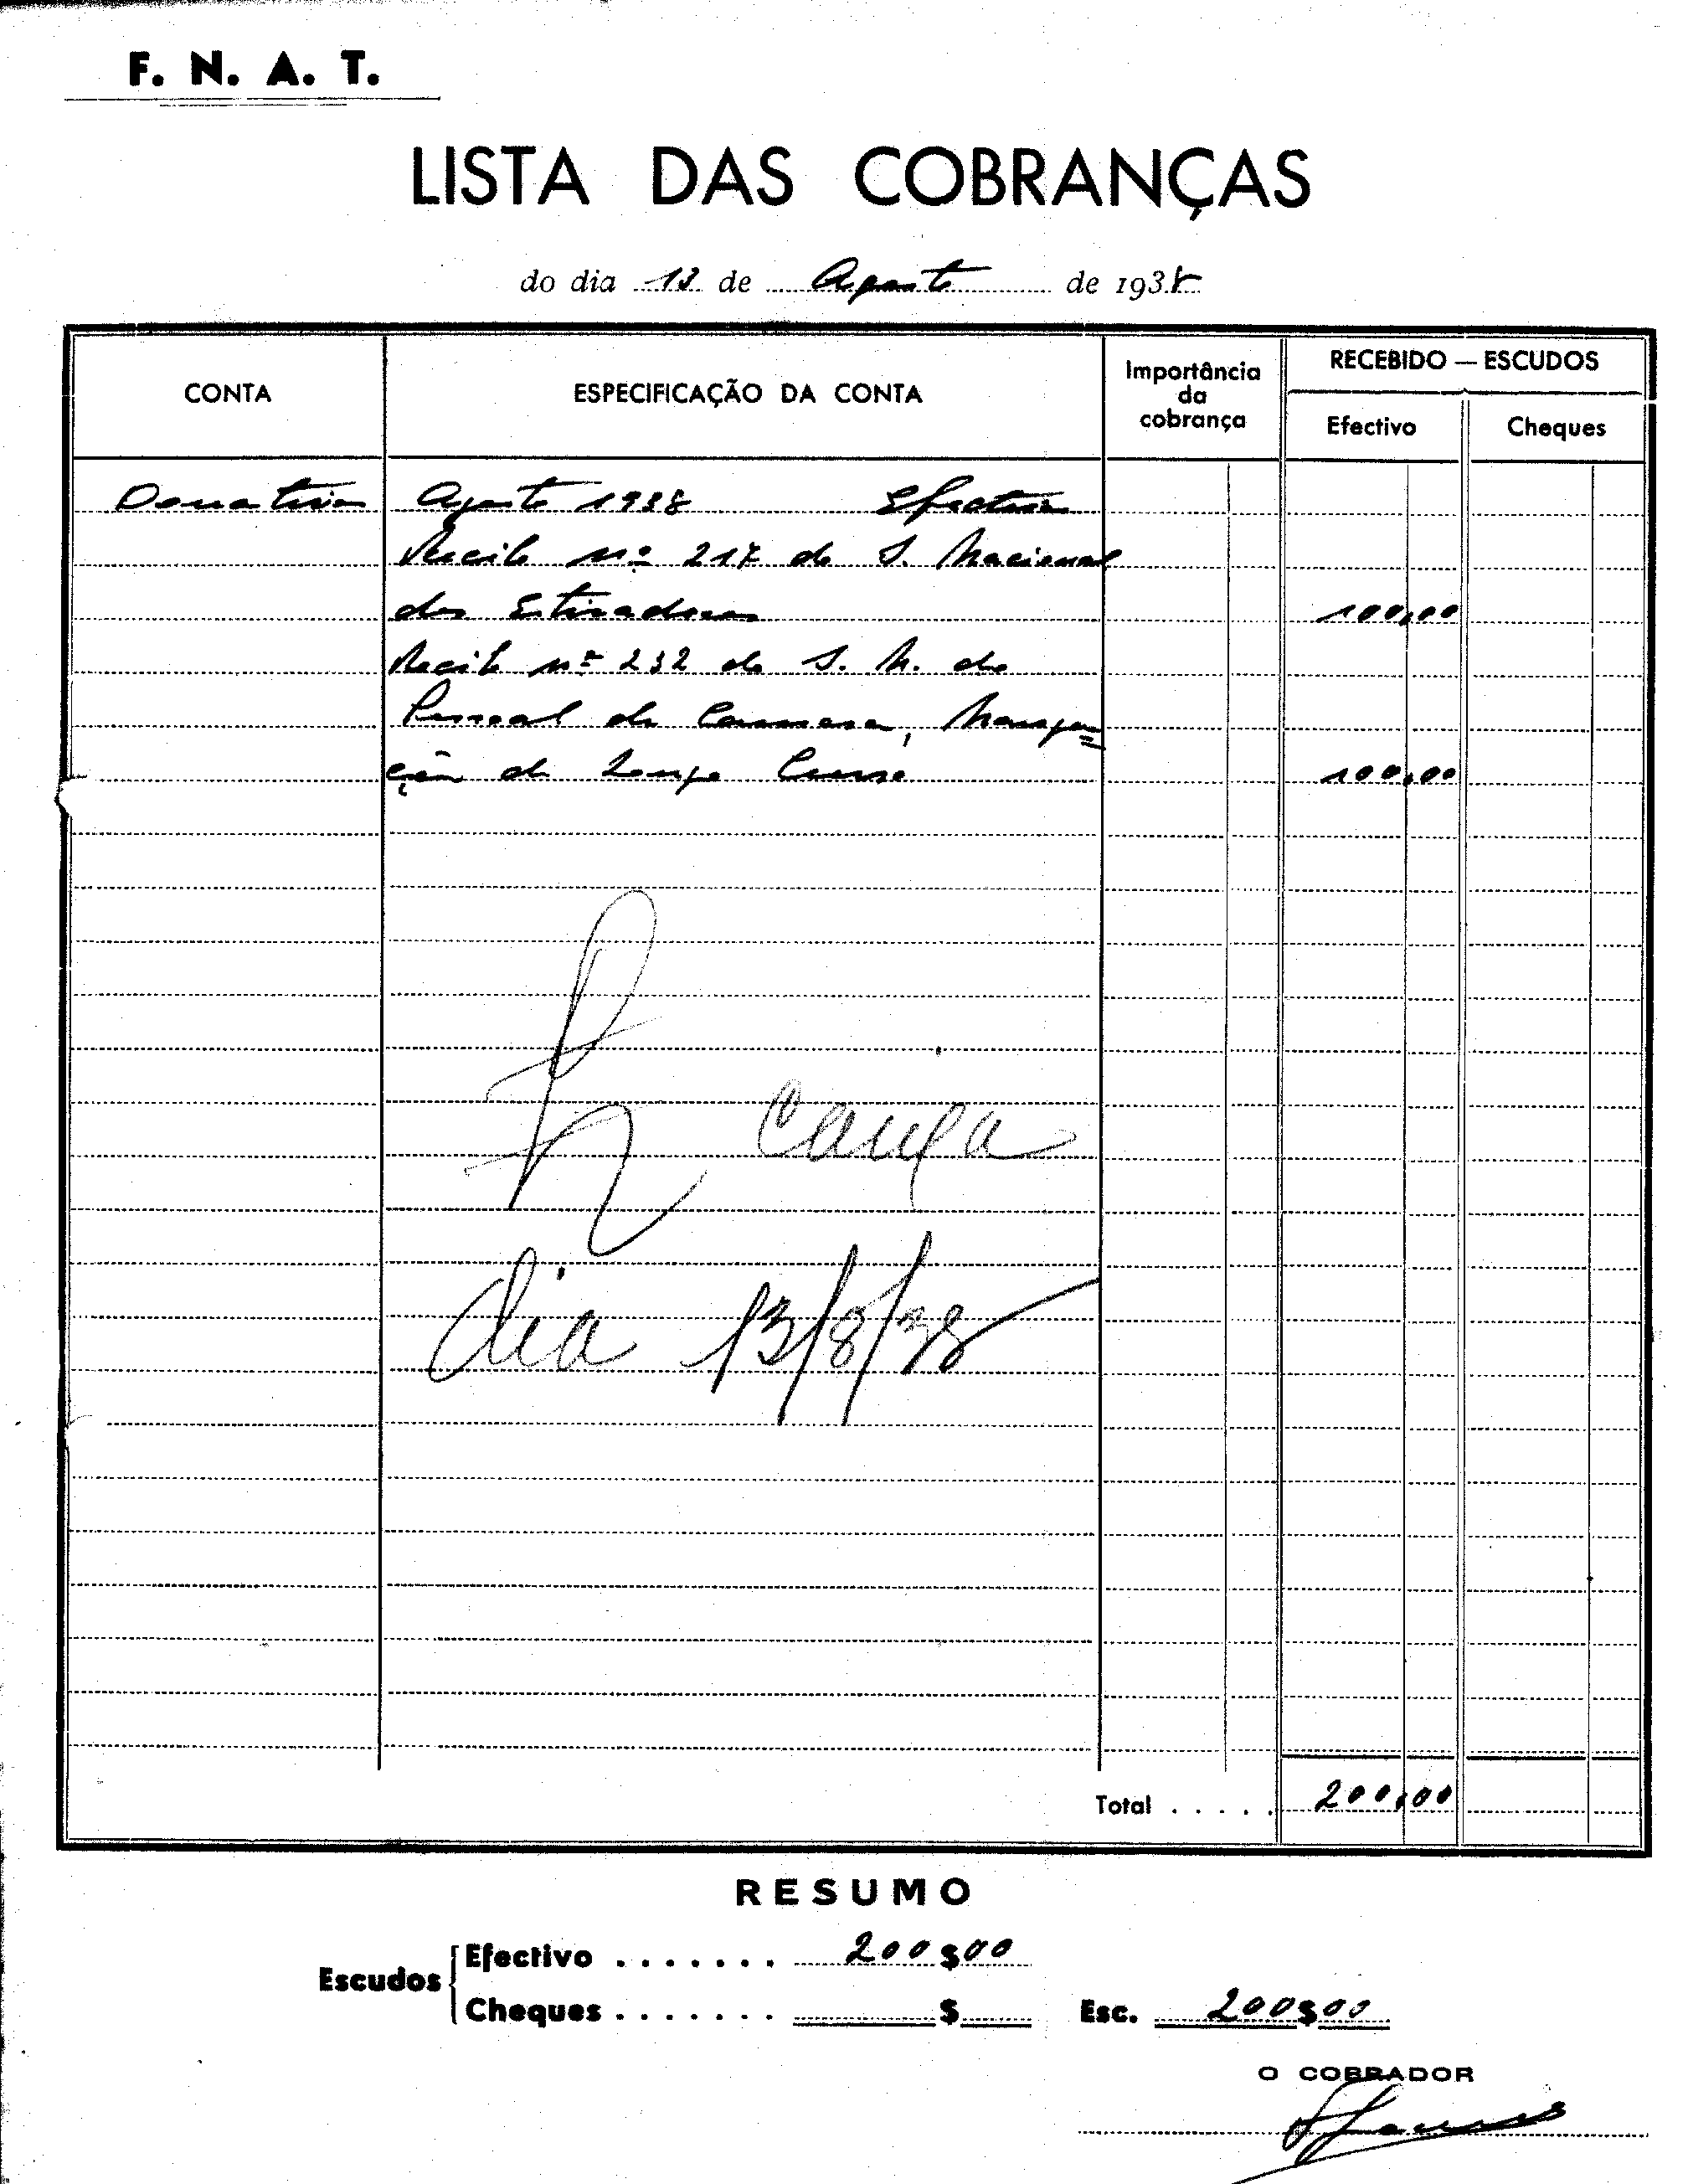 F. N. A. T.
LISTA DAS COBRANÇAS
do dia 13 de Agosto de 1938
CONTA
ESPECIFICAÇÃO DA CONTA
Importância
da
cobrança
RECEBIDO — ESCUDOS
Efectivo
Cheques
Donativos Agosto 1938 Efectivos
Recibo nº 217 do S. Nacional
dos Estivadores 100,00
Recibo nº 232 do S. N. do
Pessoal de Camaras, Navega=
ção de Longo Curso 100,00
Caixa
dia 13/8/38
Total ..... 200,00
RESUMO
Escudos
Efectivo ....... 200$00
Cheques ....... $
Esc. 200$00
O COBRADOR